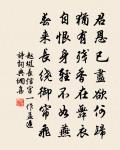 君恩已盡欲何歸
猶有殘香在舞衣
自恨身輕不如燕
春來長繞御簾飛
趙嘏長信宮一作孟遲
詩詞典網集